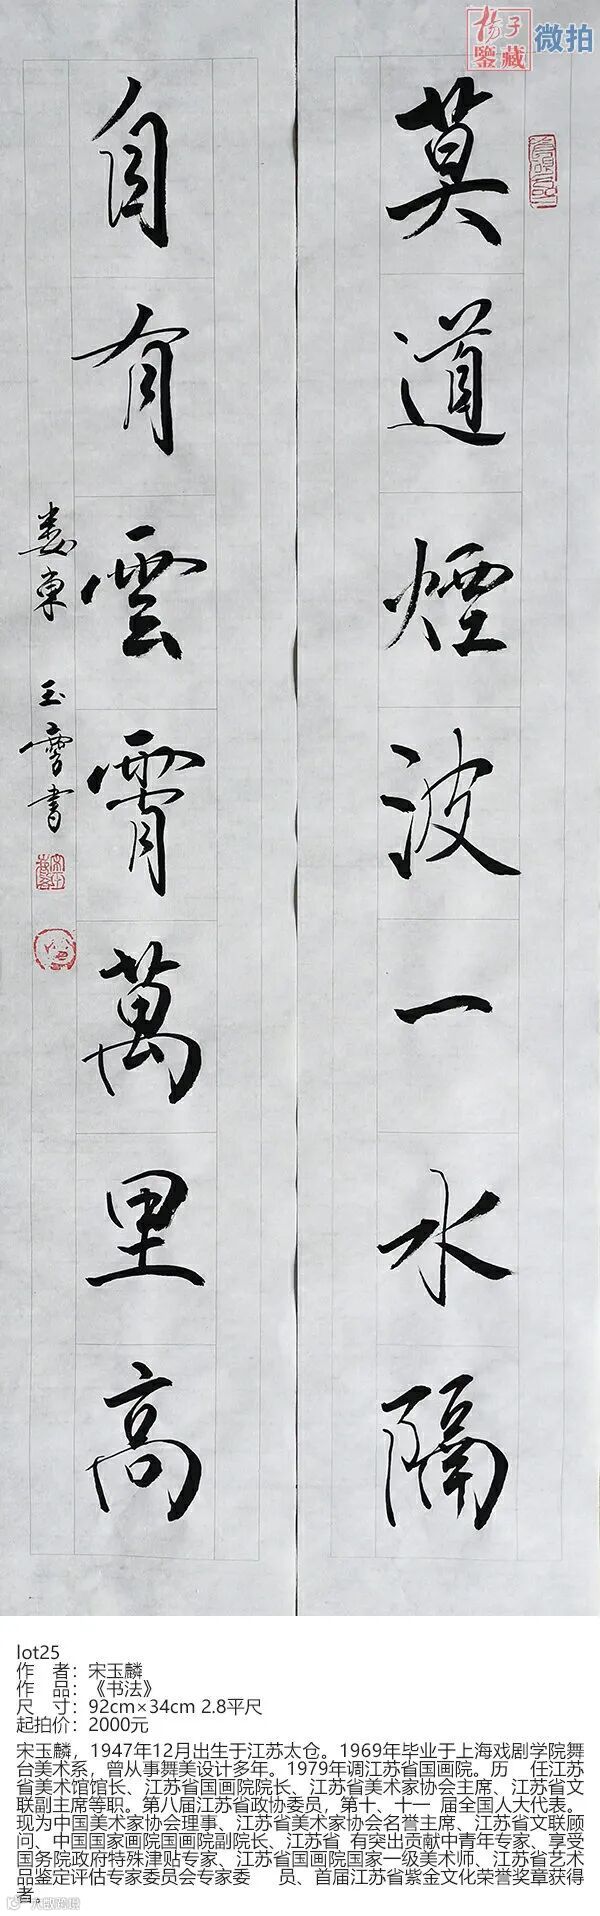 杨子
鉴藏
微拍
莫道煙波一水隔
自有雲霄萬里高
娄東
玉
書
lot25
作　者：宋玉麟
作　品：《书法》
尺　寸：92cm×34cm 2.8平尺
起拍价：2000元
宋玉麟，1947年12月出生于江苏太仓。1969年毕业于上海戏剧学院舞
台美术系，曾从事舞美设计多年。1979年调江苏省国画院。历　任江苏
省美术馆馆长、江苏省国画院院长、江苏省美术家协会主席、江苏省文
联副主席等职。第八届江苏省政协委员，第十、十一　届全国人大代表。
现为中国美术家协会理事、江苏省美术家协会名誉主席、江苏省文联顾
问、中国国家画院国画院副院长、江苏省 有突出贡献中青年专家、享受
国务院政府特殊津贴专家、江苏省国画院国家一级美术师、江苏省艺术
品鉴定评估专家委员会专家委　员、首届江苏省紫金文化荣誉奖章获得
者。
大数跨境